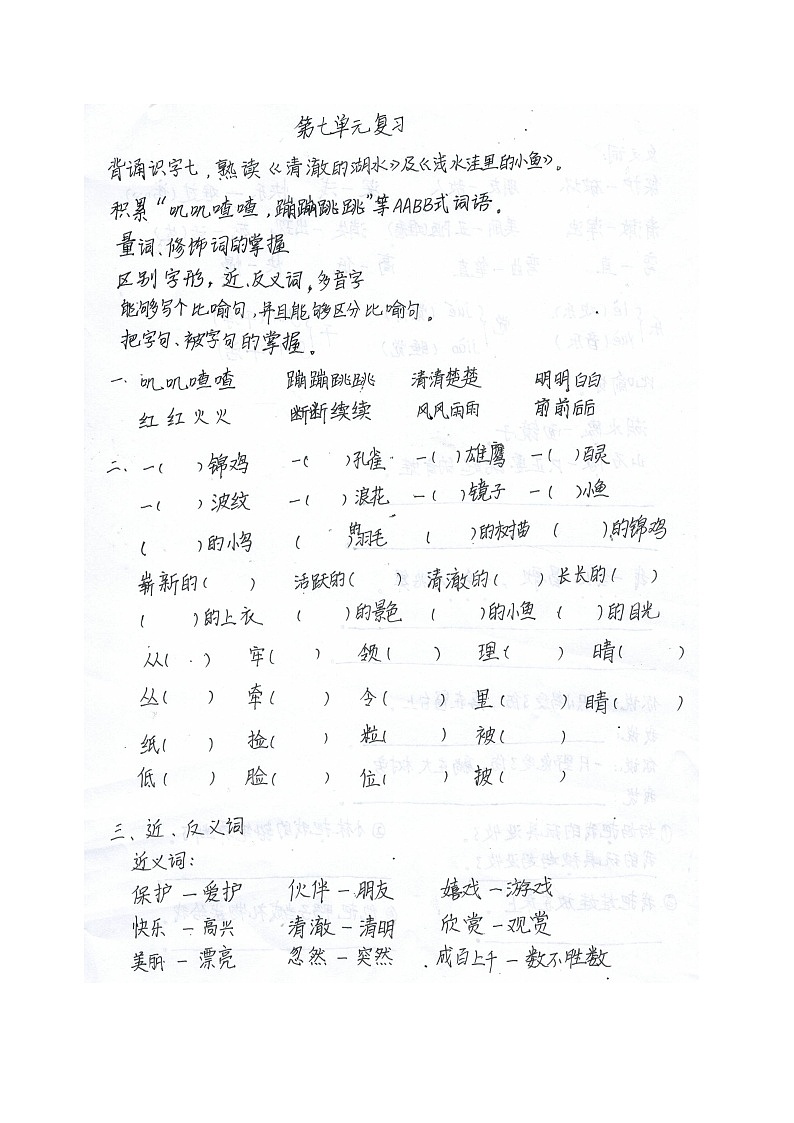 第七单元复习
背诵识字七，熟读《清澈的湖水》及《浅水洼里的小鱼》。
积累“叽叽喳喳，蹦蹦跳跳”等AABB式词语。
量词、修饰词的掌握
区别字形，近、反义词，多音字
能够写个比喻句，并且能够区分比喻句。
把字句、被字句的掌握。
一、叽叽喳喳 蹦蹦跳跳 清清楚楚 明明白白
红红火火 断断续续 风风雨雨 前前后后
二、一( )锦鸡 一( )孔雀 一( )雄鹰 一( )百灵
一( )波纹 一( )浪花 一( )镜子 一( )小鱼
( )的小鸟 ( )的羽毛 ( )的树苗 ( )的锦鸡
崭新的( ) 活跃的( ) 清澈的( ) 长长的( )
( )的上衣 ( )的景色 ( )的小鱼 ( )的目光
从( ) 牢( ) 领( ) 理( ) 晴( )
丛( ) 牵( ) 令( ) 里( ) 睛( )
纸( ) 捡( ) 粒( ) 被( )
低( ) 脸( ) 位( ) 披( )
三、近、反义词
近义词：
保护－爱护 伙伴－朋友 嬉戏－游戏
快乐－高兴 清澈－清明 欣赏－观赏
美丽－漂亮 忽然－突然 成百上千－数不胜数